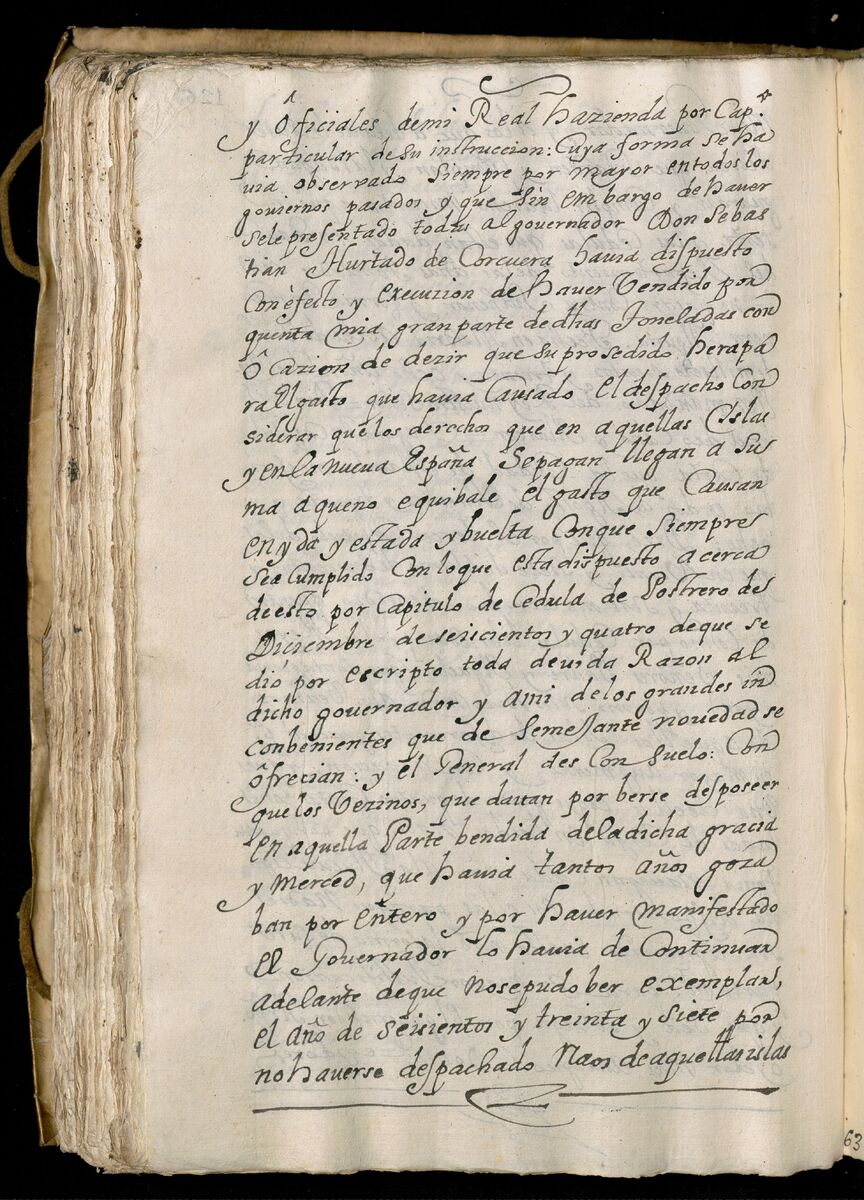 y Oficiales demi Real hazienda por Cap.º
particular de su instruccion: Cuya forma se ha
via observado siempre por mayor entodos los
goviernos pasados y que sin embargo de haver
sele presentado todas al governador Don Sebas
tian Hurtado de Corcuera havia dispuesto
Con efecto y execuzion de haver Vendido por
quenta mia gran parte de dhas Toneladas con
Ocazion de dezir que su prosedido hera pa
ra El gasto que havia Causado el despacho Con
siderar que los derechos que en aquellas Yslas
y en la nueva España Se pagan llegan a Su
ma a que no equibale el gasto que Causan
en yda y estada y buelta Conque siempre
Sea Cumplido Con lo que esta dispuesto acerca
deesto por Capitulo de Cedula de Postrero de
Diciembre de seiscientos y quatro deque se
dió por escripto toda devida Razon al
dicho governador y ami de los grandes in
conbenientes que de Semejante novedad se
ofrecian: y el General des Con suelo: Con
que los Vezinos, que davan por berse desposeer
en aquella Parte bendida de la dicha gracia
y Merced, que havia tantos años goza
ban por entero y por haver manifestado
el Governador lo havia de Continuar
adelante deque no se pudo ber exemplar,
el año de Seisientos y treinta y siete por
no haverse despachado Naos de aquellas islas
63